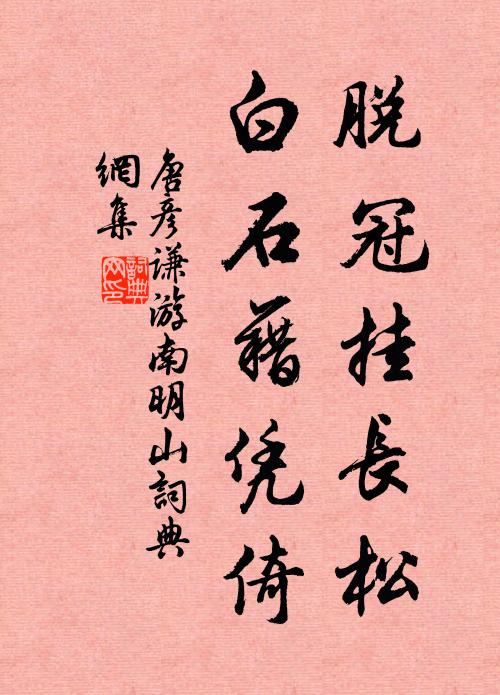 脱冠挂長松
白石藉凭倚
唐彦谦游南明山詞典
網集
詞典網印